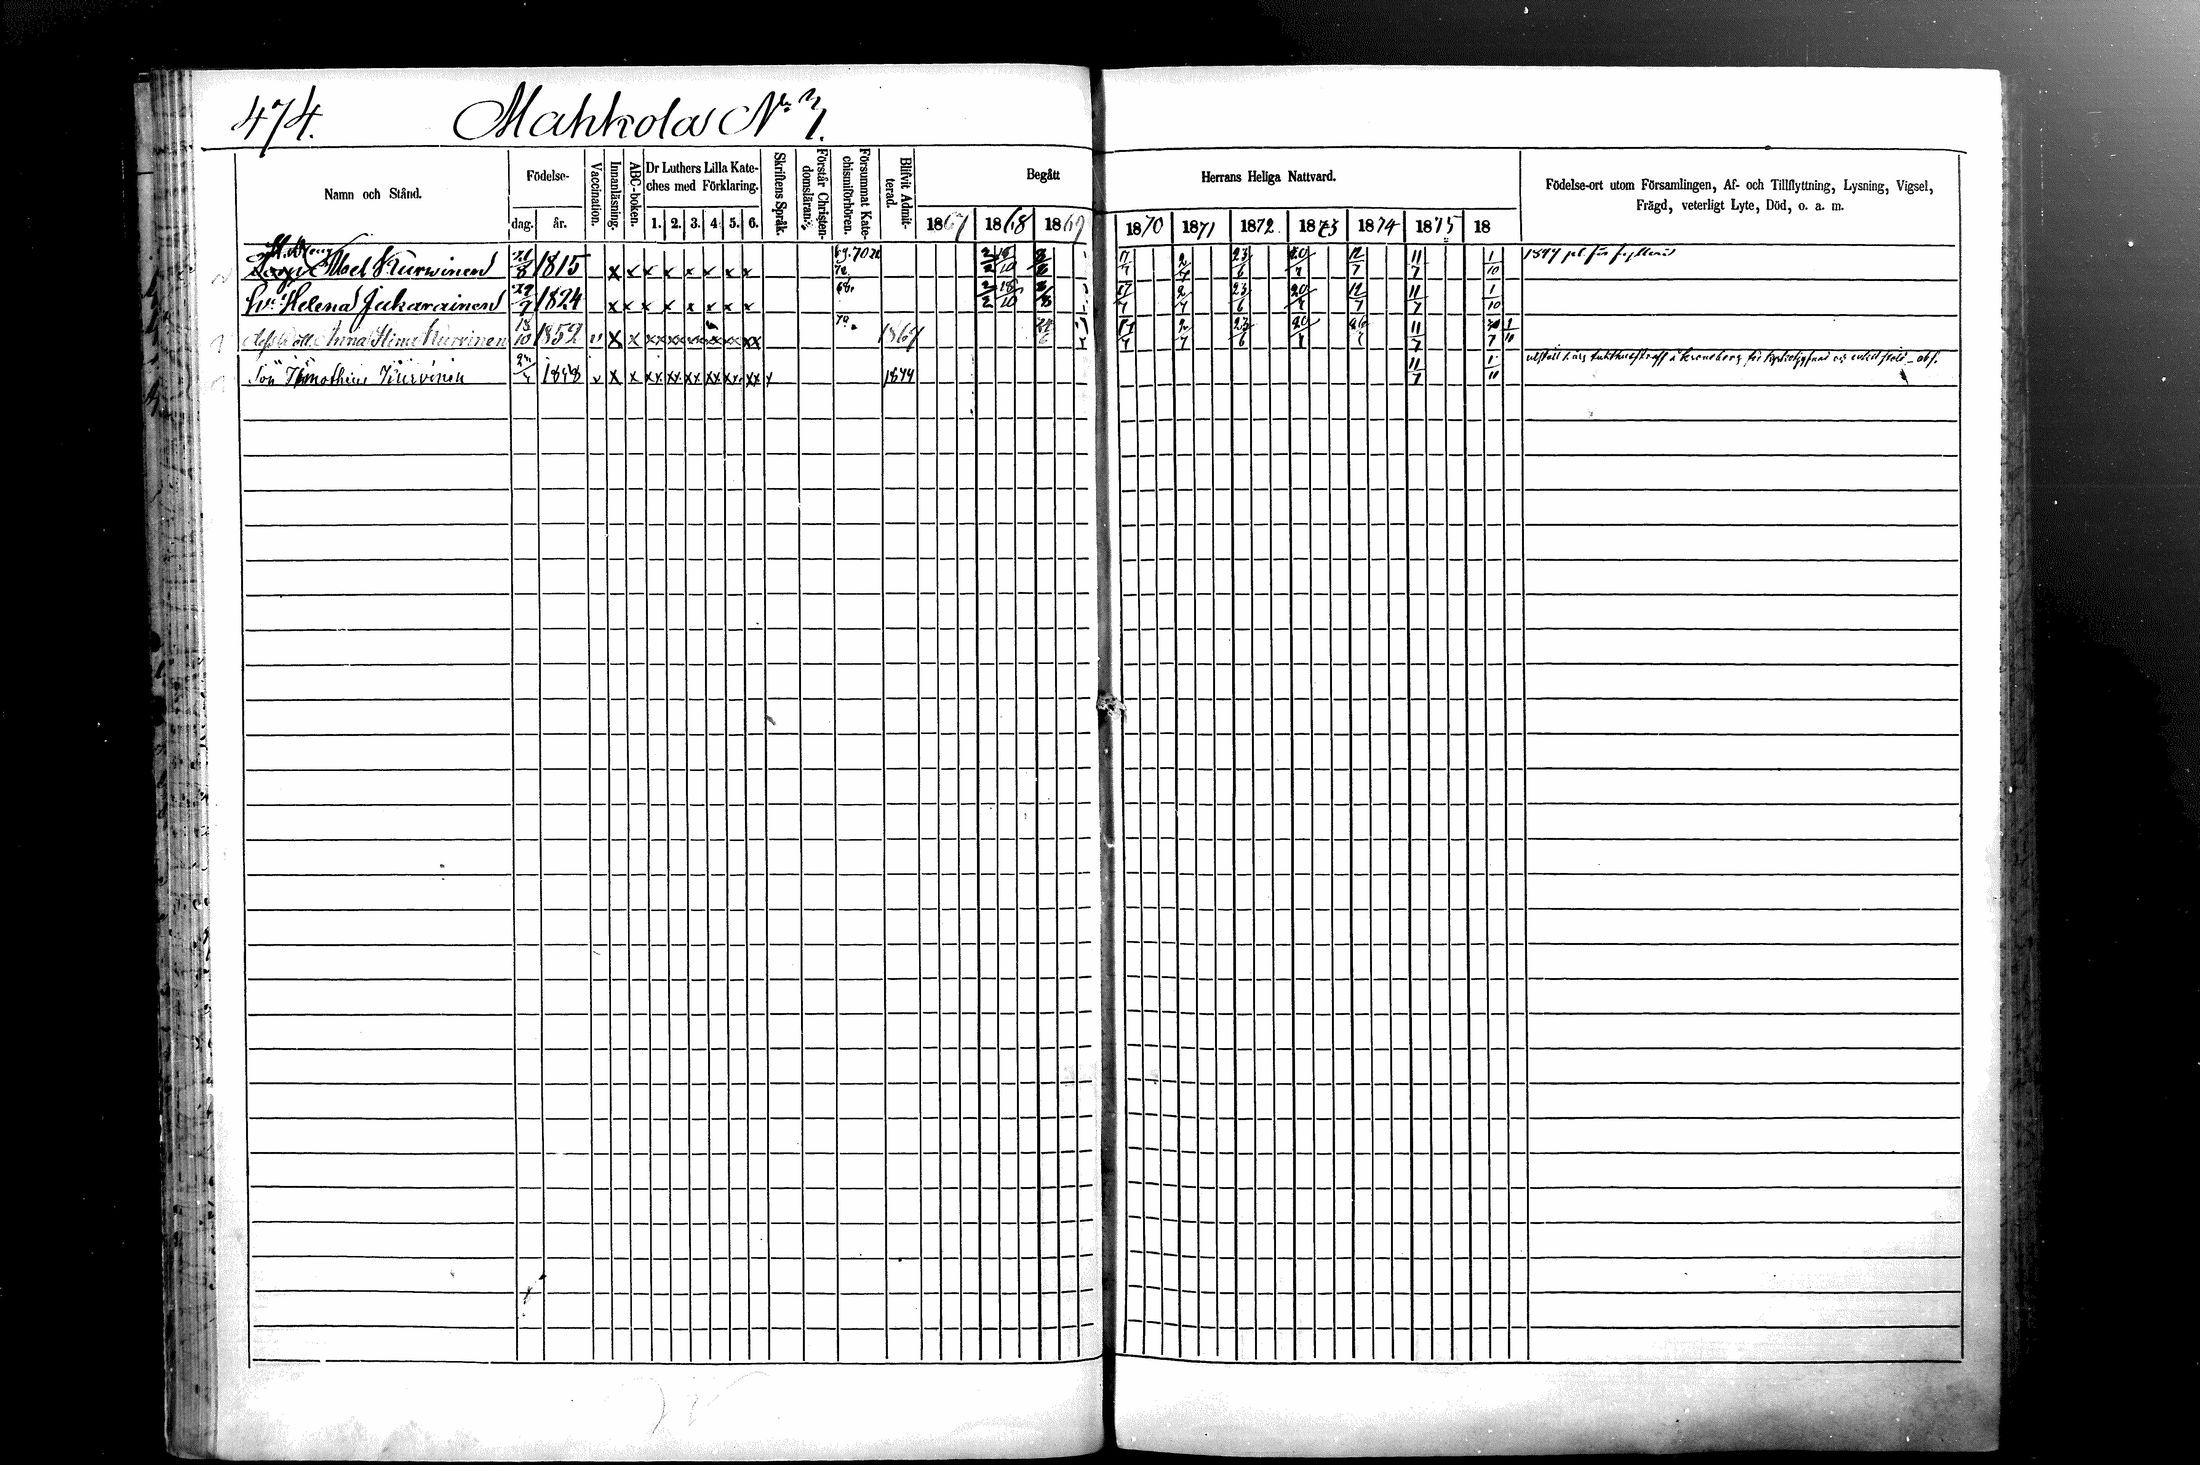 474. Mahkola No 7.
Namn och Stånd.
Födelse-
dag. år.
Vaccination.
Innanläsning.
ABC-boken.
Dr Luthers Lilla Kate-
ches med Förklaring.
1. 2. 3. 4. 5. 6.
Skriftens Språk.
Förstår Christen-
domsläran.
Försummat Kate-
chismiförhören.
Blifvit Admit-
terad.
Begått Herrans Heliga Nattvard.
1867 1868 1869 1870 1871 1872 1873 1874 1875 18
Födelse-ort utom Församlingen, Af- och Tillflyttning, Lysning, Vigsel,
Frägd, veterligt Lyte, Död, o. a. m.
Abel Kurwinen 21/8 1815 x x x x x x x x 69. 70 72 2/2 18/10 17/7 2/7 23/6 20/7 12/7 11/7 1/10 pl. för fylleri
Hu. Helena Jukarainen 29/9 1824 x x x x x x x x 68. 2/2 18/10 17/7 2/7 23/6 20/7 12/7 11/7 1/10
Anna Stina Kurvinen 18/10 1852 v x x xx xx xx xx xx xx 70. 1867 24/6 17/7 2/7 23/6 20/7 26/7 11/7
Son Timotheus Kurvinen 1848 v x x xx xx xx xx xx xx x 1874 11/7 1/10